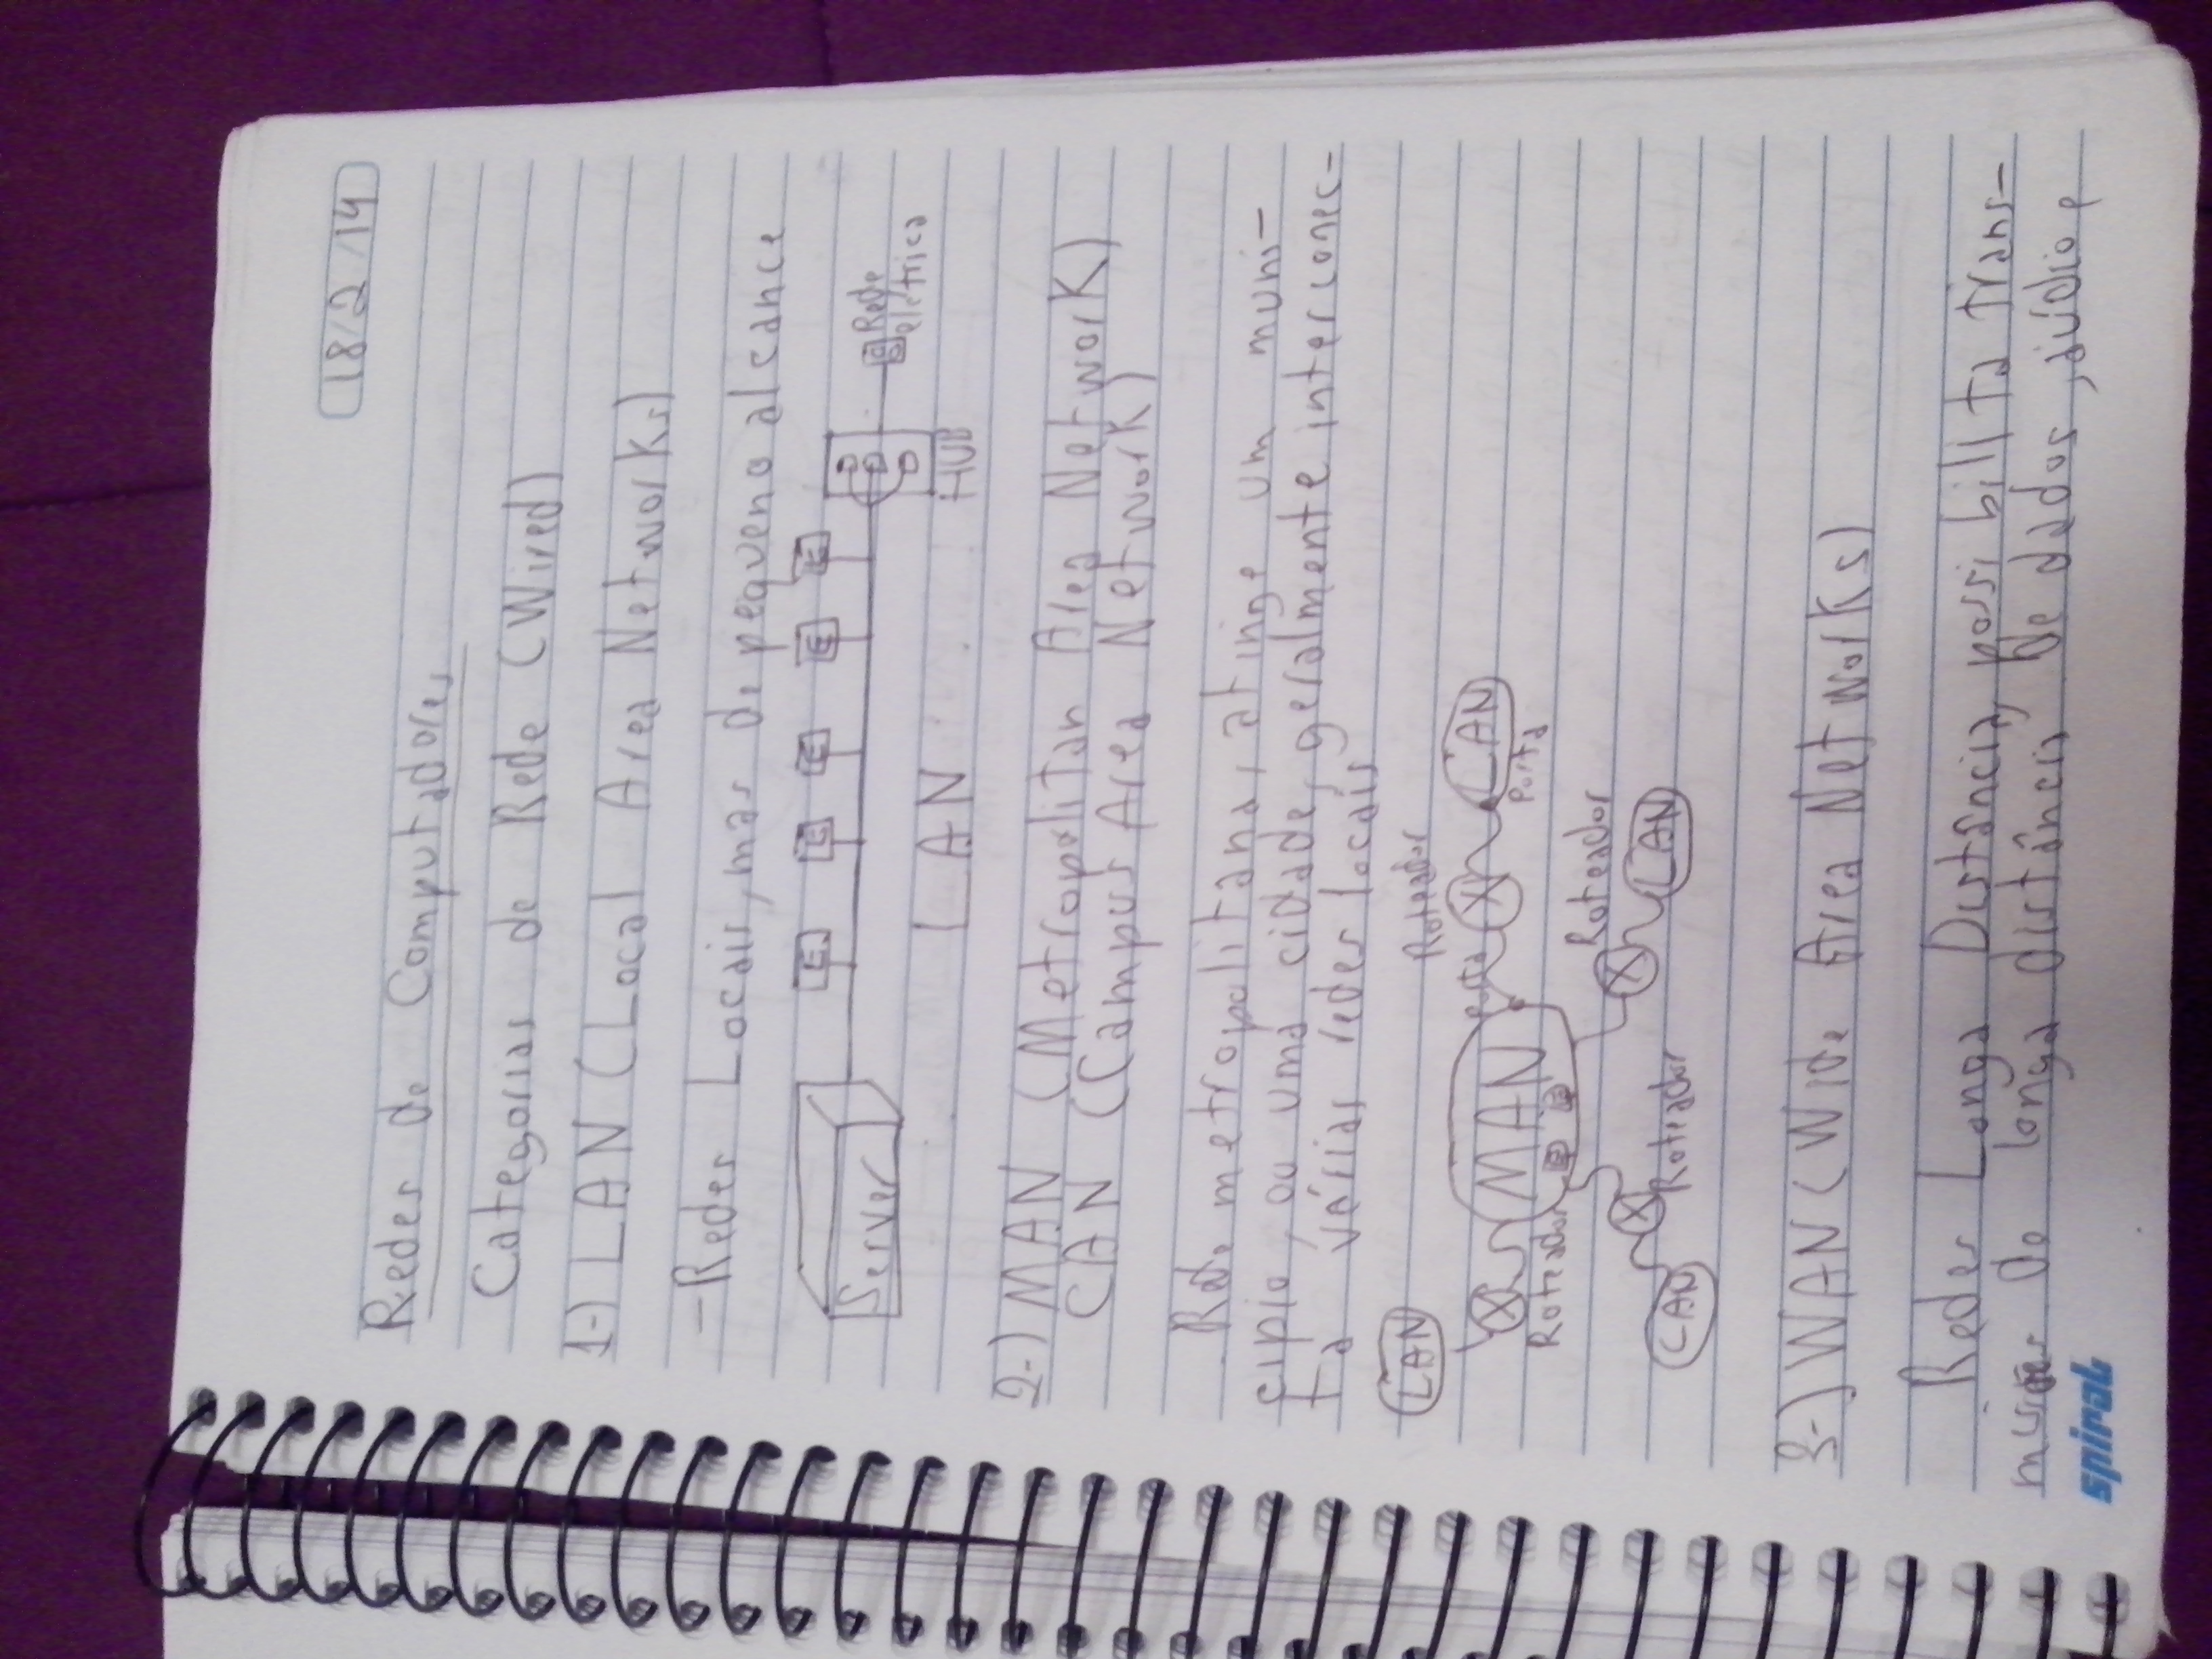 18/2/14
Redes de Computadores
Categorias de Rede (Wired)
1-) LAN (Local Area Networks)
- Redes Locais, mas de pequeno alcance
E E E E E
Server
Rede
eletrica
LAN
HUB
2-) MAN (Metropolitan Area Network)
CAN (Campus Area Network)
Rede metropolitana, atinge um muni-
cipio, ou uma cidade, geralmente interconec-
ta várias redes locais
LAN
Roteador
MAN
Porta
LAN
Porta
Roteador
Roteador
LAN
Roteador
LAN
3-) WAN (Wide Area Networks)
Redes Longa Distância, possibilita trans-
missões de longa distância de dados, aúdio e
spiral